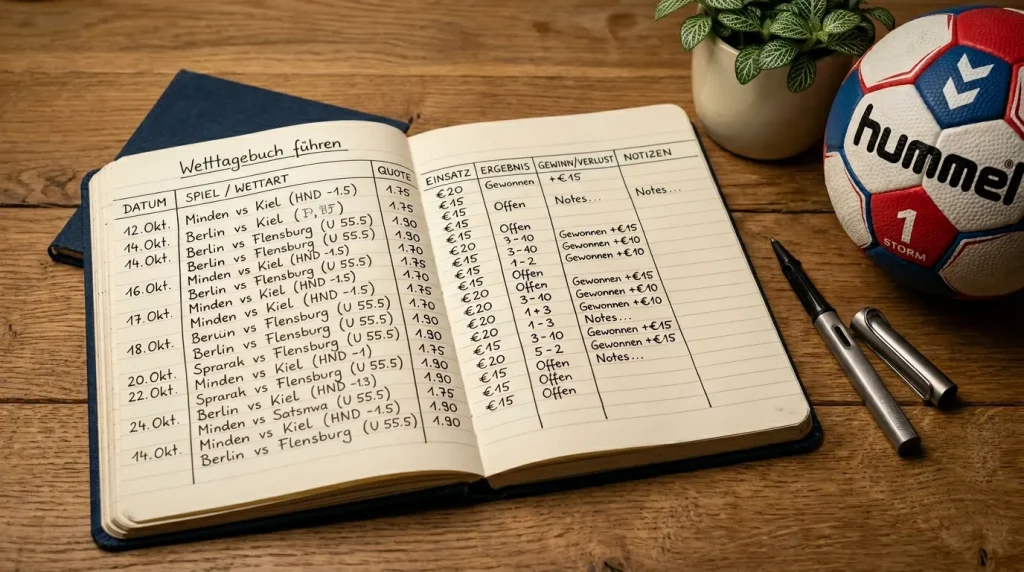 Wetttagebuch führen
DATUM SPIEL / WETTART QUOTE
12.Okt. Minden vs Kiel (HND -1.5) 1.75
14.Okt. Berlin vs Kiel 1.75
14.Okt. Berlin vs Flensburg (U 55.5) 1.90
Minden vs Kiel (HND -1.5) 1.70
16.Okt. Berlin vs Flensburg (U 55.5) 1.90
Minden vs Kiel (HND -1.5) 1.75
17.Okt. Minden vs Kiel (HND -1.5) 1.70
Beruin vs Flensburg (U 55.5) 1.90
18.Okt. Berlin vs Flensburg (U 55.5) 1.90
Sprarak vs Flensburg (U 55.5) 1.75
20.Okt. Minden vs Kiel (HND -1) 1.90
22.Okt. Sprarak vs Flensburg (U 55.5) 1.90
Berlin vs Kiel (HND -13) 1.75
24.Okt. Minden vs Satsnwa (U 55.5) 1.90
Minden vs Kiel (HND -1.5) 1.90
14.Okt. Berlin vs Flensburg (U 55.5)
EINSATZ ERGEBNIS GEWINN/VERLUST NOTIZEN
€20 Gewonnen +€15
€15 Offen Notes... Notes...
€15
€15 Offen
€20 3-10 Gewonnen +€15
€15 3-10 Gewonnen +€10
€15 1-2
€15 Offen Gewonnen +€15
€20 Offen Gewonnen +€10
€20 3-10 Gewonnen +€10
€20 1+3 Notes...
€20 1-3 Gewonnen +€15
€15 3-10 Gewonnen +€15
€20 5-2 Notes...
€15 Offen
€15 Offen
€15 Offen
hummel®
1
STORM